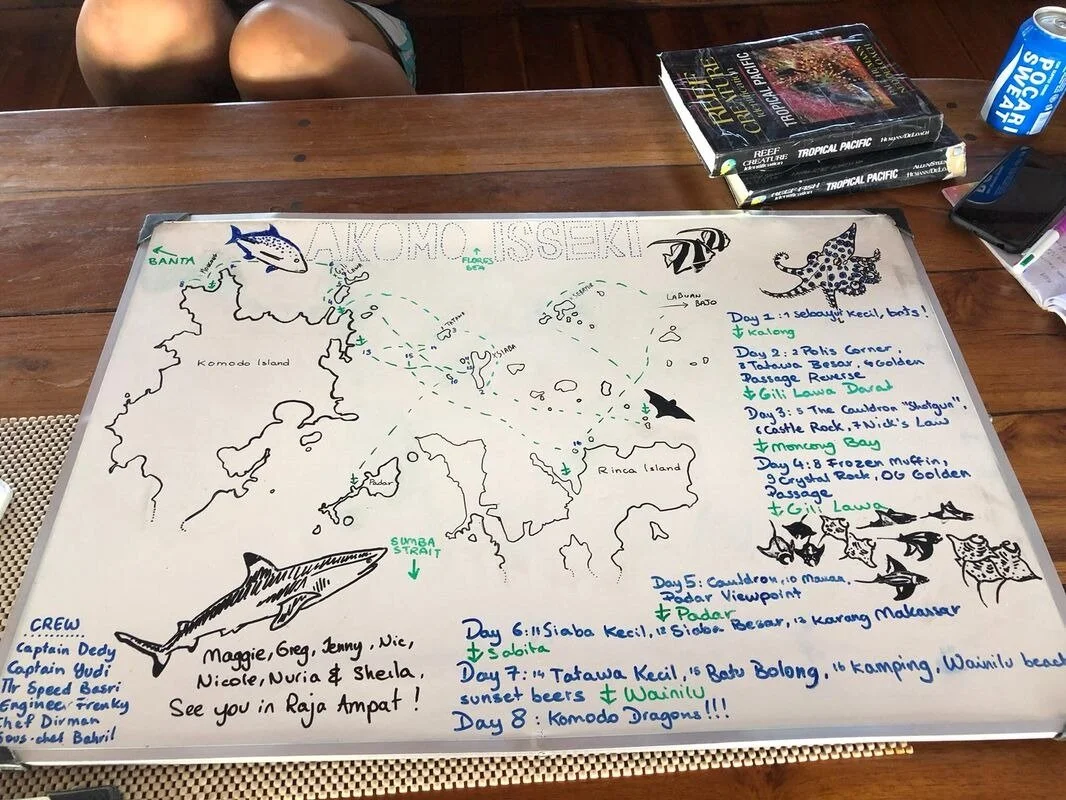 REEF
CREATURE
Identification
TROPICAL PACIFIC
REEF CREATURE Identification TROPICAL PACIFIC HUMANN/DELOACH
REEF FISH Identification TROPICAL PACIFIC ALLEN/STEENE HUMANN/DELOACH
POCARI
SWEAT
AKOMO ISSEKI
BANTA
FLORES
SEA
LABUAN
BAJO
TATAWA
SIABA
Komodo Island
Padar
Rinca Island
SUMBA
STRAIT
13
15
16
Day 1: 1 sebayur kecil, bats!
Kalong
Day 2: 2 Polis Corner,
3 Tatawa Besar, 4 Golden
Passage Reverse
Gili Lawa Darat
Day 3: 5 The Cauldron "Shotgun",
6 Castle Rock, 7 Nick's Law
Moncong Bay
Day 4: 8 Frozen Muffin,
9 Crystal Rock, OG Golden
Passage
Gili Lawa
Day 5: Cauldron, 10 Mawan,
Padar Viewpoint
Padar
Day 6: 11 Siaba Kecil, 12 Siaba Besar, 13 Karang Makassar
Sabita
Day 7: 14 Tatawa Kecil, 15 Batu Bolong, 16 Kamping, Wainilu beach
sunset beers Wainilu
Day 8: Komodo Dragons!!!
CREW
Captain Dedy
Captain Yudi
Mr Speed Basri
Engineer Frenky
Chef Dirman
Sous-chef Bahril
Maggie, Greg, Jenny, Nic,
Nicole, Nuria & Sheila,
See you in Raja Ampat!